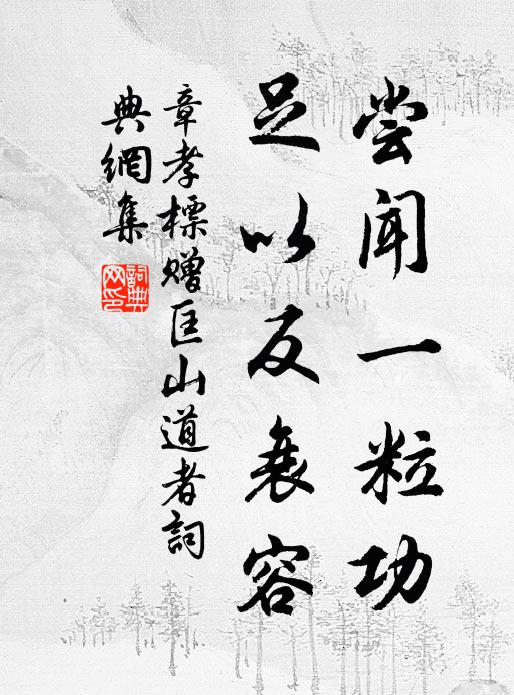 尝闻一粒功
足以反衰容
章孝標贈匡山道者詞
典網集
詞典
网印